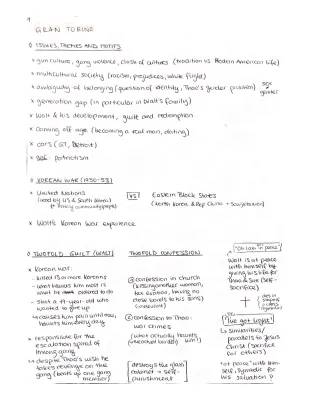 GRAN TORINO
ISSUES, THEMES AND MOTIFS
* gun culture, gang violence, clash of cultures (tradition vs Modern American Life)
* multicultural society (racism, prejudices, white flight)
* ambiguity of belonging (question of identity, Thao's gender position)
* generation gap (in particular in Walt's family)
* Walt & his development, guilt and redemption
* Coming off age (becoming a real man, dating)
* cars (GT, Detroit)
* patriotism
KOREAN WAR (1950-53)
* United Nations
(lead by US & South Korea)
VS
Eastern Block States
(North Korea & Rep China + Sowjetunion)
* Walt's Korean war experience
TWOFOLD GUILT (WALT)
* Korean war:
- killed 13 or more Koreans
- what haunts him most is what he ordered to do
- shot a 17-year old who wanted to give up
→ causes him pain until now, haunts him every day
* responsible for the escalation spiral of
→ despite Thao's wish he takes revenge on the gang (beats up one gang member)
TWOFOLD CONFESSION
① confession in church
(kissing another woman, tax evasion, having no close bonds to his sons)
② confession to Thao:
war crimes
(what actually haunts
destroys the glass
cabinet → self-
punishment
"Oh I am in peace"
Walt is at peace with himself by giving his life for Thao & Sue (self-sacrifice)
"I've got light"
↳ similarities/
parallels to Jesus
Christ (sacrifice
for others)
"at peace" with him-
self, symbolic for
his situation